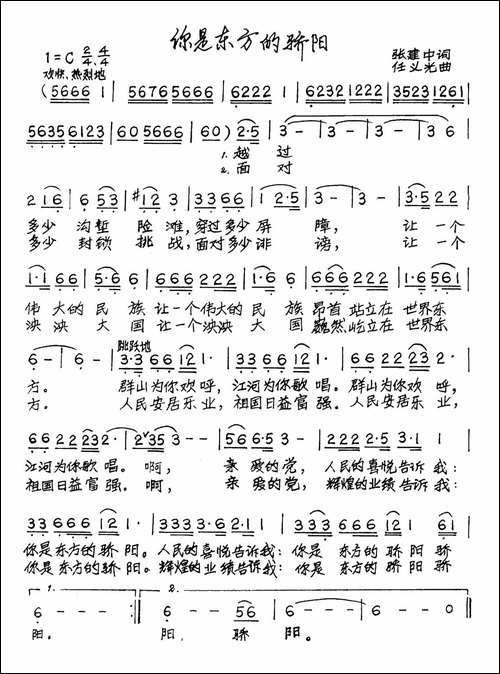 你是东方的骄阳
1=C 2/4 4/4
欢快、热烈地
张建中词
任义光曲
(5666 1 | 56765666 | 6222 1 | 62321222 | 35231261 |
56356123 | 60 5666 | 60) 2·5 | 3 - - - | 3 - 3 6 |
1.越 过
2.面 对
2 16 | 6 53 | #12 3 | 33 66 | 1 2·5 | 3 - | 3 - | 3·5 22 |
多少 沟堑 险 滩，穿过多少屏 障， 让一个
多少 封锁 挑 战，面对多少诽 谤， 让一个
1·1 66 | 5·6 6 | 666 222 | 1·2 16 | 666 222 | 1·6 561 |
伟大的民 族让一个伟大的民 族昂首站立在世界东
泱泱大 国让一个泱泱大 国巍然屹立在世界东
跳跃地
6 - | 6 - | 3·3 66 | 12 1 · | 33 66 | 12 1 · | 66 22 | 23 2 · |
方。 群山为你欢呼，江河为你歌唱。群山为你欢呼，
方。 人民安居乐业，祖国日益富强。人民安居乐业，
66 22 | 23 2 · | 2 35 3 | 3 - - | 56 6·5 3 | 222 2·5 | 3·1 1 |
江河为你歌唱。啊， 亲爱的党，人民的喜悦告诉我：
祖国日益富强。啊， 亲爱的党，辉煌的业绩告诉我：
33 666 | 12 1 · | 333 3·6 | 2·1 1 | 33 666 | 12 1 | 61 |
你是东方的骄阳。人民的喜悦告诉我：你是东方的骄阳骄
你是东方的骄阳。辉煌的业绩告诉我：你是东方的骄阳骄
1. 2.
6 - - - :‖ 6 - - 56 | 6 - - - | 6 - - 0 ‖
阳。 阳，骄 阳。